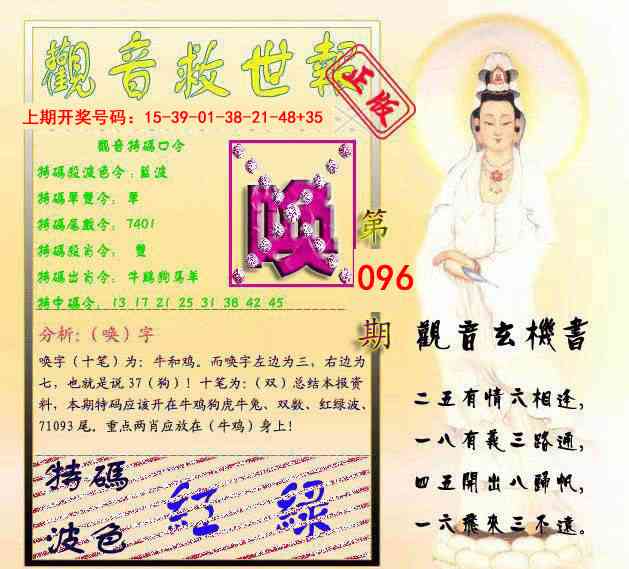 觀音救世報
正版
上期开奖号码：15-39-01-38-21-48+35
觀音特碼口令
特碼殺波色令：藍波
特碼單雙令：單
特碼尾數令：7401
特碼殺肖令：雙
特碼出肖令：牛鷄狗馬羊
特中碼令：13 17 21 25 31 38 42 45
唤
第
096
期
分析：（唤）字
唤字（十笔）为：牛和鸡。而唤字左边为三，右边为
七，也就是说37（狗）！十笔为：（双）总结本报资
料，本期特码应该开在牛鸡狗虎牛兔、双数、红绿波、
71093尾。重点两肖应放在（牛鸡）身上！
特碼
波色
紅 綠
觀音玄機書
二五有情六相逢，
一八有義三路通，
四五開出八歸帆，
一六飛來三不遠。